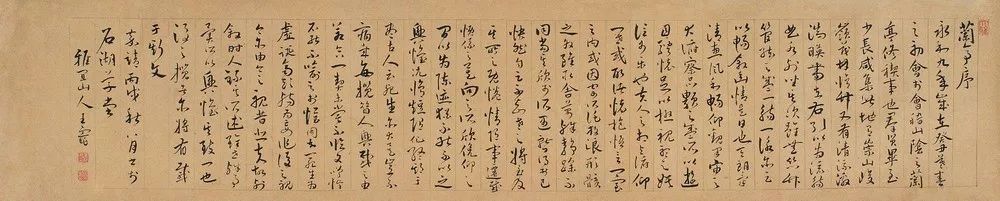 蘭亭序
永和九年歲在癸丑暮春
之初會于會稽山陰之蘭
亭脩稧事也羣賢畢至
少長咸集此地有崇山峻
嶺茂林脩竹又有清流激
湍暎帶左右引以為流觴
曲水列坐其次雖無絲竹
管絃之盛一觴一詠亦足
以暢敘幽情是日也天朗氣
清惠風和暢仰觀宇宙之
大俯察品類之盛所以遊
目騁懷足以極視聽之娛
信可樂也夫人之相與俯仰
一世或取諸懷抱悟言一室
之內或因寄所託放浪形骸
之外雖趣舍萬殊靜躁不
同當其欣於所遇暫得於己
快然自足不知老之將至及
其所之既惓情隨事遷感
慨係之矣向之所欣俛仰之
間以為陳迹猶不能不以之
興懷況脩短隨化終期于
盡古人云死生亦大矣豈不
痛哉每攬昔人興感之由
若合一契未嘗不臨文嗟悼
不能不喻之於懷固知一死生為
虛誕齊彭殤為妄作後之視
今亦由今之視昔悲夫故列
敘時人錄其所述雖世殊事
異所以興懷其致一也
後之攬者亦將有感
于斯文
嘉靖丙戌秋八月書
石湖草堂
雅宜山人王寵